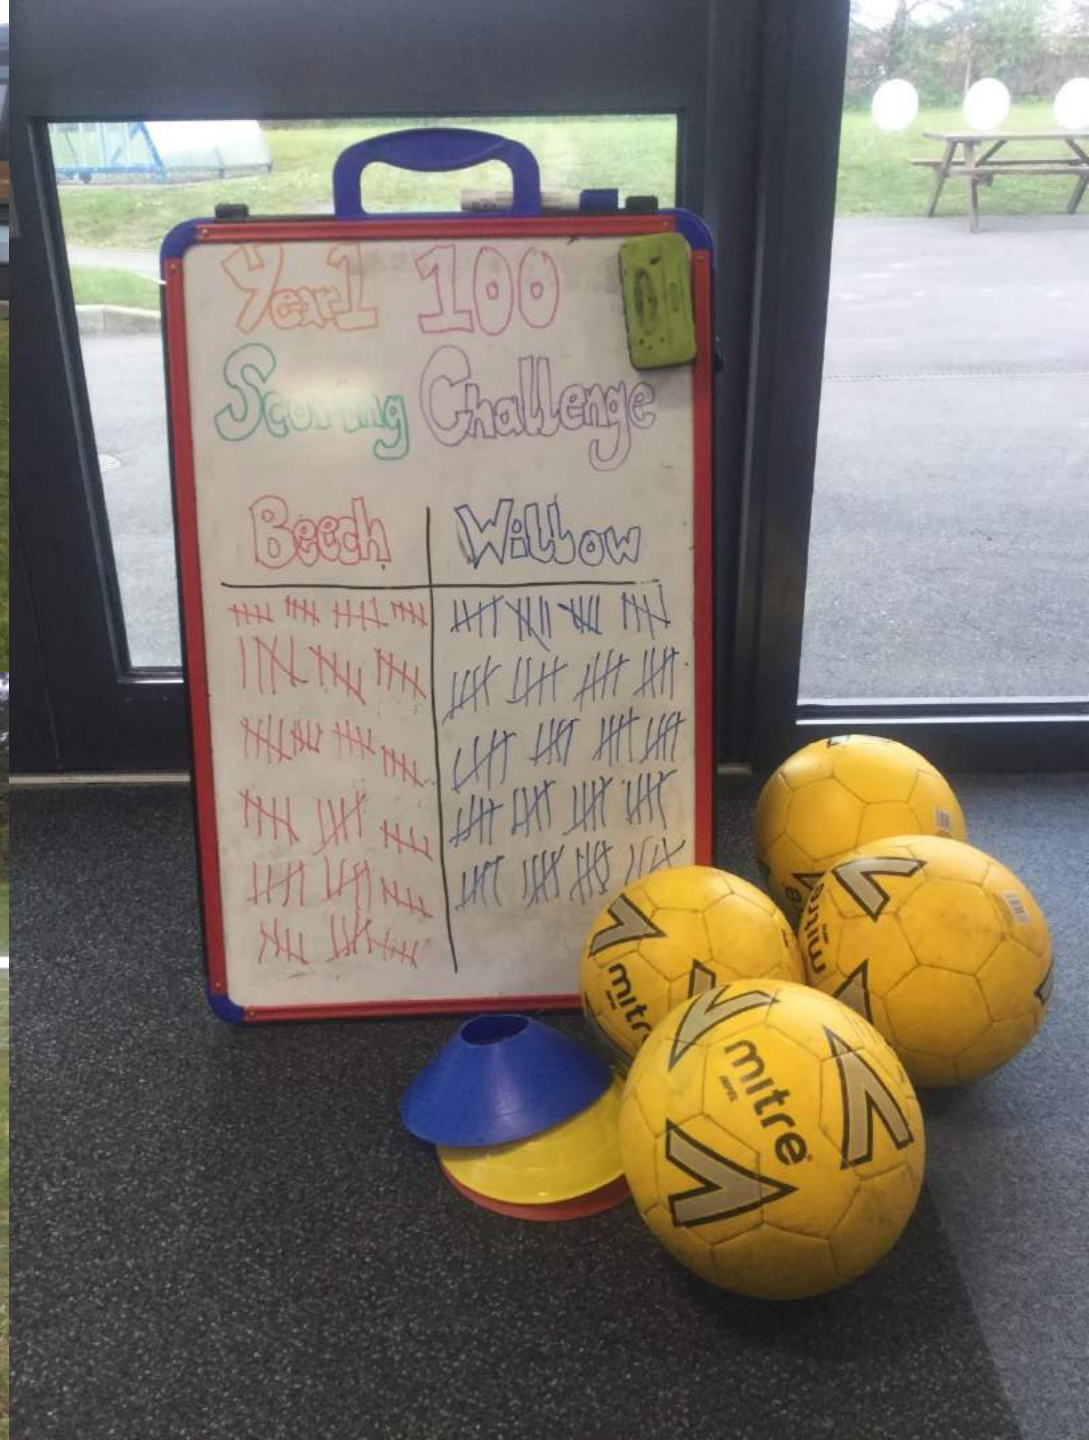 Year 1 100
Scoring Challenge
Beech Willow
mitre
mitre
mitre